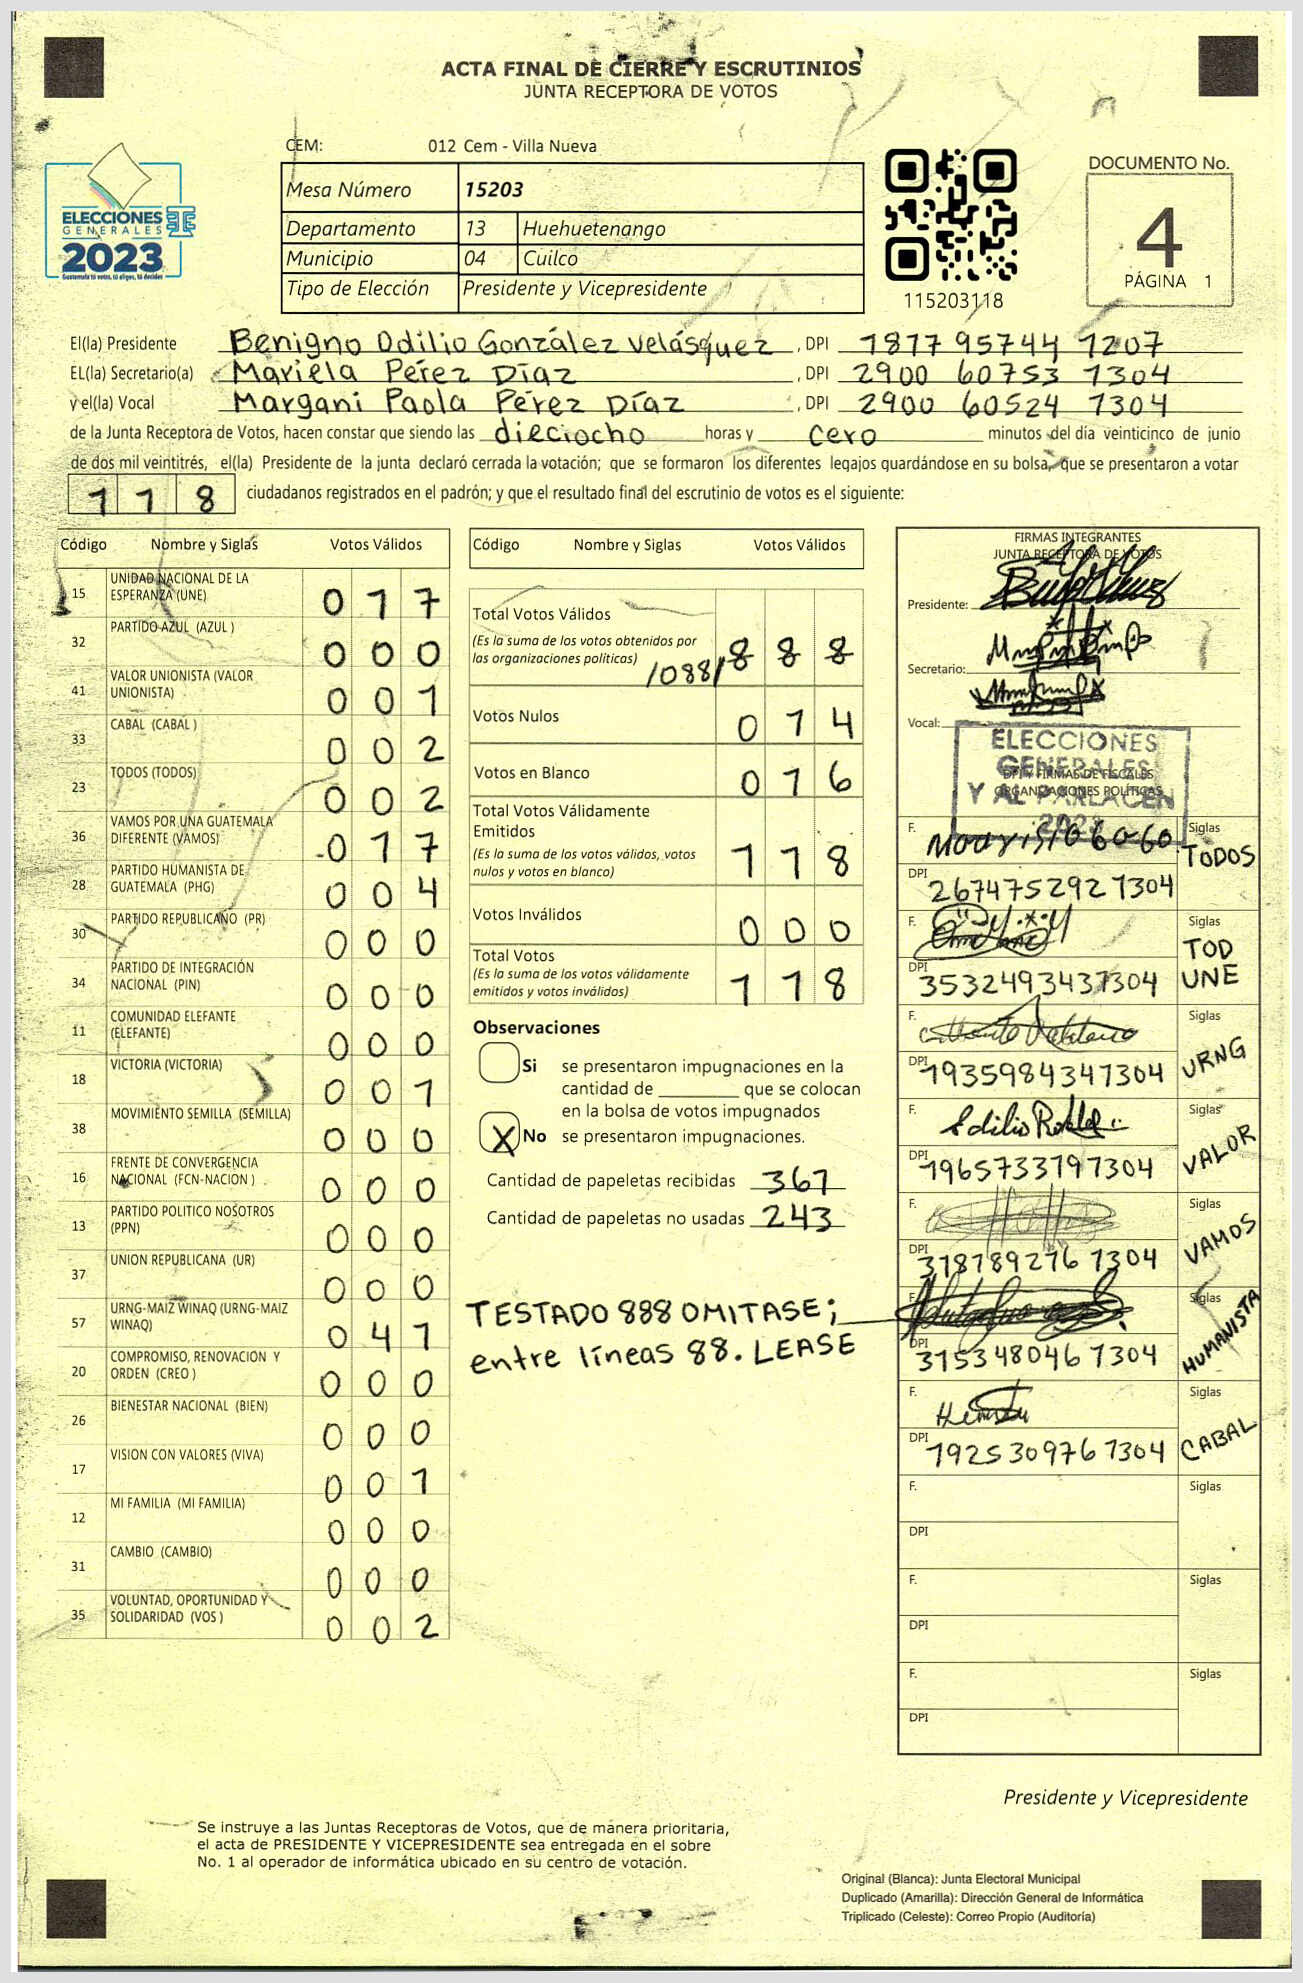 ACTA FINAL DE CIERRE Y ESCRUTINIOS
JUNTA RECEPTORA DE VOTOS
CEM: 012 Cem - Villa Nueva
ELECCIONES
GENERALES
2023
Guatemala tú votas, tú eliges, tú decides
Mesa Número 15203
Departamento 13 Huehuetenango
Municipio 04 Cuilco
Tipo de Elección Presidente y Vicepresidente
115203118
DOCUMENTO No.
4
PÁGINA 1
El(la) Presidente Benigno Odilio González Velásquez , DPI 1877 95744 1207
EL(la) Secretario(a) Mariela Pérez Díaz , DPI 2900 60753 1304
y el(la) Vocal Margani Paola Pérez Díaz , DPI 2900 60524 1304
de la Junta Receptora de Votos, hacen constar que siendo las dieciocho horas y cero minutos del día veinticinco de junio
de dos mil veintitrés, el(la) Presidente de la junta declaró cerrada la votación; que se formaron los diferentes legajos guardándose en su bolsa, que se presentaron a votar
118 ciudadanos registrados en el padrón; y que el resultado final del escrutinio de votos es el siguiente:
Código Nombre y Siglas Votos Válidos
15 UNIDAD NACIONAL DE LA ESPERANZA (UNE) 017
32 PARTIDO AZUL (AZUL ) 000
41 VALOR UNIONISTA (VALOR UNIONISTA) 001
33 CABAL (CABAL ) 002
23 TODOS (TODOS) 002
36 VAMOS POR UNA GUATEMALA DIFERENTE (VAMOS) 017
28 PARTIDO HUMANISTA DE GUATEMALA (PHG) 004
30 PARTIDO REPUBLICANO (PR) 000
34 PARTIDO DE INTEGRACIÓN NACIONAL (PIN) 000
11 COMUNIDAD ELEFANTE (ELEFANTE) 000
18 VICTORIA (VICTORIA) 001
38 MOVIMIENTO SEMILLA (SEMILLA) 000
16 FRENTE DE CONVERGENCIA NACIONAL (FCN-NACION ) 000
13 PARTIDO POLITICO NOSOTROS (PPN) 000
37 UNION REPUBLICANA (UR) 000
57 URNG-MAIZ WINAQ (URNG-MAIZ WINAQ) 041
20 COMPROMISO, RENOVACION Y ORDEN (CREO ) 000
26 BIENESTAR NACIONAL (BIEN) 000
17 VISION CON VALORES (VIVA) 001
12 MI FAMILIA (MI FAMILIA) 000
31 CAMBIO (CAMBIO) 000
35 VOLUNTAD, OPORTUNIDAD Y SOLIDARIDAD (VOS ) 002
Código Nombre y Siglas Votos Válidos
Total Votos Válidos
(Es la suma de los votos obtenidos por
las organizaciones políticas) /088/ 888
Votos Nulos 014
Votos en Blanco 016
Total Votos Válidamente
Emitidos
(Es la suma de los votos válidos, votos
nulos y votos en blanco) 118
Votos Inválidos 000
Total Votos
(Es la suma de los votos válidamente
emitidos y votos inválidos) 118
Observaciones
Si se presentaron impugnaciones en la
cantidad de que se colocan
en la bolsa de votos impugnados
X No se presentaron impugnaciones.
Cantidad de papeletas recibidas 367
Cantidad de papeletas no usadas 243
TESTADO 888 OMITASE;
entre líneas 88. LEASE
FIRMAS INTEGRANTES
JUNTA RECEPTORA DE VOTOS
Presidente:
Secretario:
Vocal:
ELECCIONES
GENERALES
Y AL PARLACEN
2023
DPI Y FIRMAS DE FISCALES
ORGANIZACIONES POLÍTICAS
F. Siglas TODOS
DPI 267475292 1304
F. Siglas TOD UNE
DPI 3532493431304
F. Siglas URNG
DPI 1935984341304
F. Siglas VALOR
DPI 1965733191304
F. Siglas VAMOS
DPI 318189276 1304
F. Siglas HUMANISTA
DPI 315348046 1304
F. Siglas CABAL
DPI 192530976 1304
F. Siglas
DPI
F. Siglas
DPI
F. Siglas
DPI
Presidente y Vicepresidente
Se instruye a las Juntas Receptoras de Votos, que de manera prioritaria,
el acta de PRESIDENTE Y VICEPRESIDENTE sea entregada en el sobre
No. 1 al operador de informática ubicado en su centro de votación.
Original (Blanca): Junta Electoral Municipal
Duplicado (Amarilla): Dirección General de Informática
Triplicado (Celeste): Correo Propio (Auditoría)